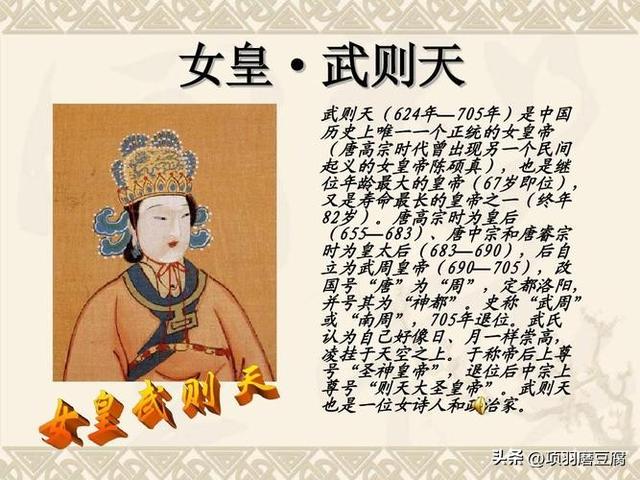 女皇·武则天
武则天（624年—705年）是中国
历史上唯一一个正统的女皇帝
（唐高宗时代曾出现另一个民间
起义的女皇帝陈硕真），也是继
位年龄最大的皇帝（67岁即位），
又是寿命最长的皇帝之一（终年
82岁）。唐高宗时为皇后
（655—683）、唐中宗和唐睿宗
时为皇太后（683—690），后自
立为武周皇帝（690—705），改
国号“唐”为“周”，定都洛阳，
并号其为“神都”。史称“武周”
或“南周”，705年退位。武氏
认为自己好像日、月一样崇高，
凌挂于天空之上。于称帝后上尊
号“圣神皇帝”，退位后中宗上
尊号“则天大圣皇帝”。武则天
也是一位女诗人和政治家。
女皇武则天
头条 @项羽磨豆腐